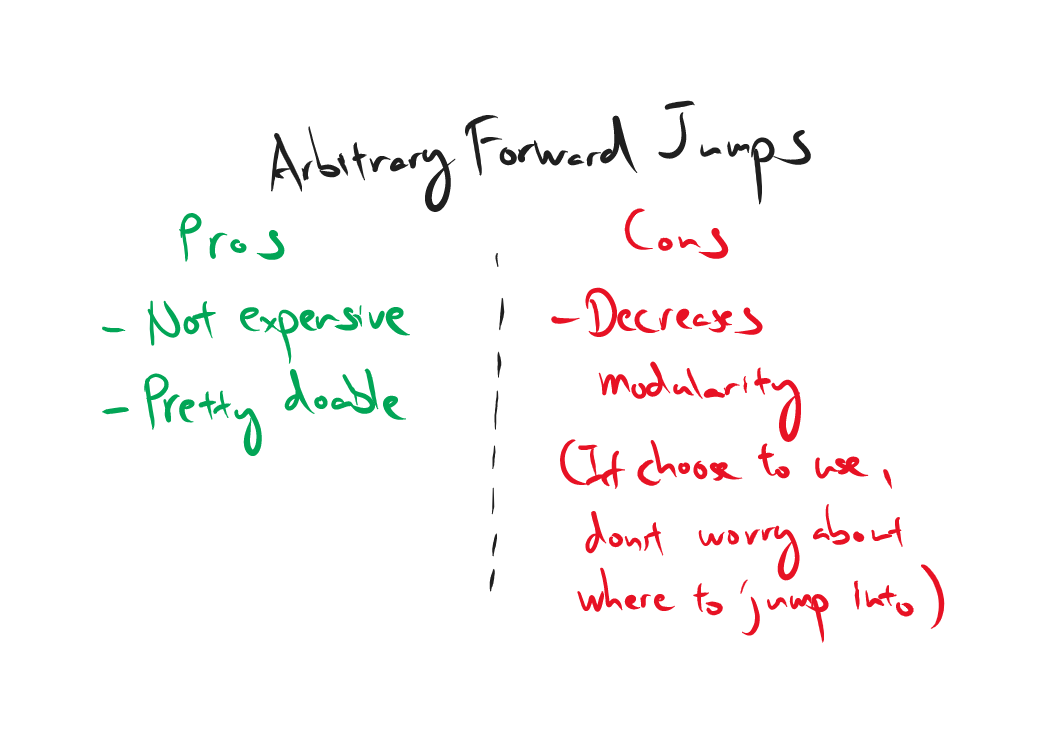 Arbitrary Forward Jumps
Pros
- Not expensive
- Pretty doable
Cons
- Decreases
modularity
(If choose to use,
don't worry about
where to jump into)